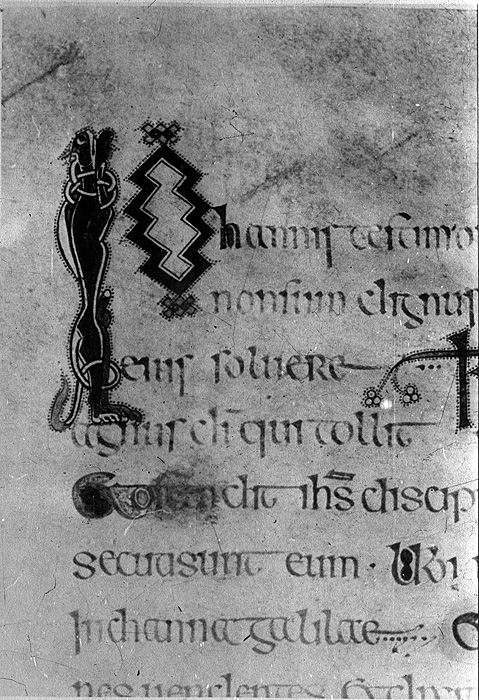 IOhannis testimo
non sum dignus
eius soluere
agnus dī qui tollit
Ostendit ihs̄ discip
secuti sunt eum · Ubi
In channa galilae
nes uendentes